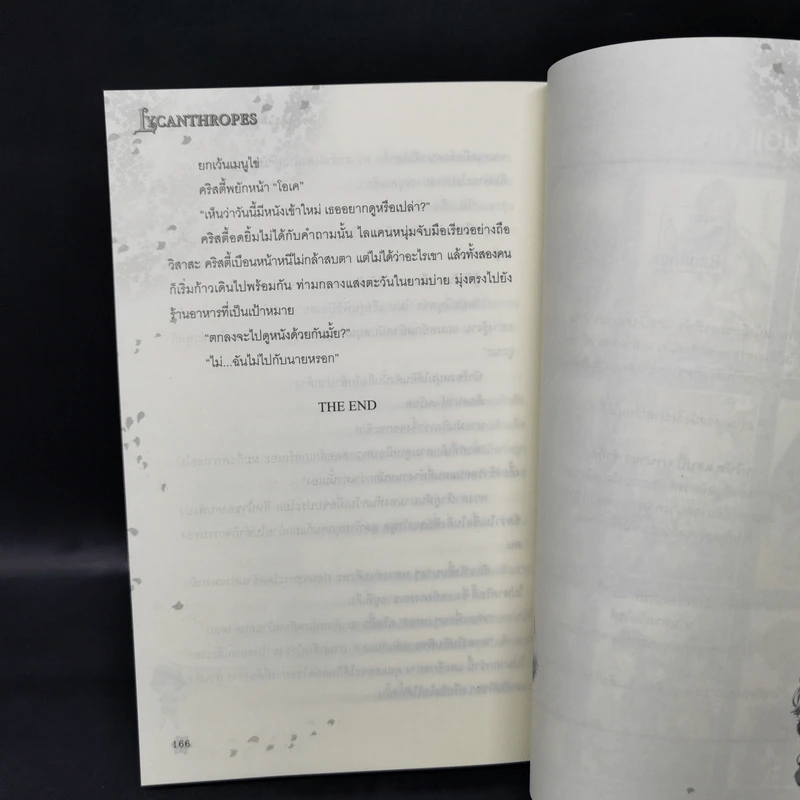 LYCANTHROPES
ยกเว้นเมนูไข่
คริสตี้พยักหน้า “โอเค”
“เห็นว่าวันนี้มีหนังเข้าใหม่ เธออยากดูหรือเปล่า?”
คริสตี้อดยิ้มไม่ได้กับคำถามนั้น ไลแคนหนุ่มจับมือเรียวอย่างถือ
วิสาสะ คริสตี้เบือนหน้าหนีไม่กล้าสบตา แต่ไม่ได้ว่าอะไรเขา แล้วทั้งสองคน
ก็เริ่มก้าวเดินไปพร้อมกัน ท่ามกลางแสงตะวันในยามบ่าย มุ่งตรงไปยัง
ร้านอาหารที่เป็นเป้าหมาย
“ตกลงจะไปดูหนังด้วยกันมั้ย?”
“ไม่...ฉันไม่ไปกับนายหรอก”
THE END
166